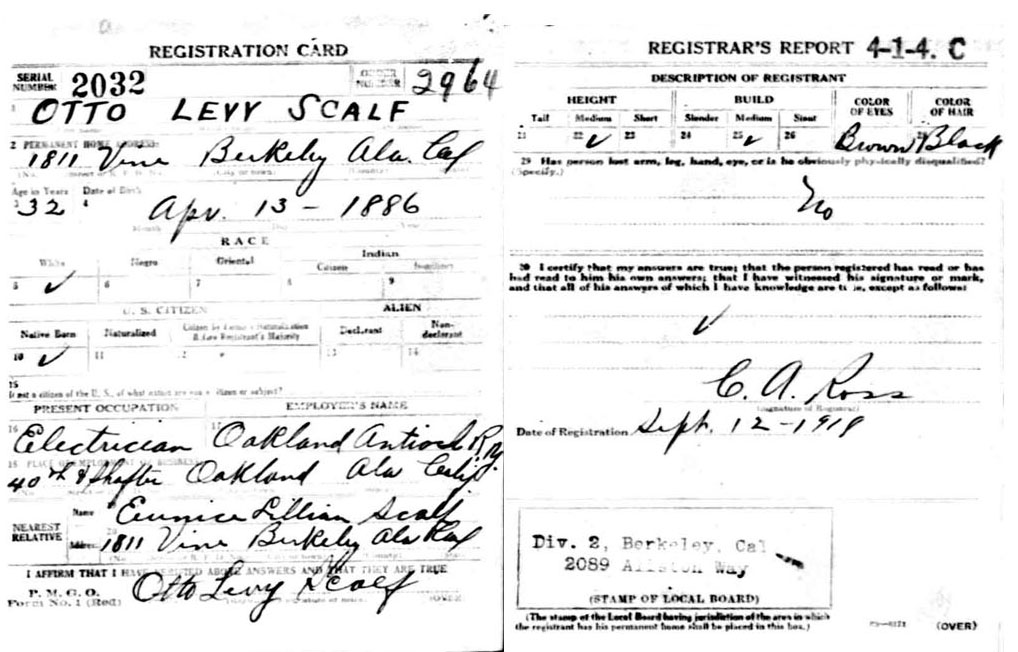 REGISTRATION CARD
SERIAL NUMBER 2032 ORDER NUMBER 2964
1 OTTO LEVY SCALF
2 PERMANENT HOME ADDRESS:
1811 Vine Berkeley Ala. Cal
Age in Years Date of Birth
3 32 4 Apr. 13 - 1886
Month Day Year
RACE
White Negro Oriental Indian
Citizen Noncitizen
5 ✓ 6 7 8 9
U. S. CITIZEN ALIEN
Native Born Naturalized Citizen by Father's Naturalization Before Registrant's Majority Declarant Non-declarant
10 ✓ 11 12 13 14
15
If not a citizen of the U. S., of what nation are you a citizen or subject?
PRESENT OCCUPATION EMPLOYER'S NAME
16 Electrician 17 Oakland Antioch Ry.
18 PLACE OF EMPLOYMENT OR BUSINESS
40th & Shafter Oakland Ala Calif
NEAREST RELATIVE
Name Eunice Lillian Scalf
Address 1811 Vine Berkeley Ala Cal
I AFFIRM THAT I HAVE VERIFIED ABOVE ANSWERS AND THAT THEY ARE TRUE
P. M. G. O.
Form No. 1 (Red) Otto Levy Scalf (OVER)
REGISTRAR'S REPORT 4-1-4. C
DESCRIPTION OF REGISTRANT
HEIGHT BUILD COLOR OF EYES COLOR OF HAIR
Tall Medium Short Slender Medium Stout
21 22 ✓ 23 24 25 ✓ 26 Brown 28 Black
29 Has person lost arm, leg, hand, eye, or is he obviously physically disqualified?
(Specify.)
No
30 I certify that my answers are true; that the person registered has read or has
had read to him his own answers; that I have witnessed his signature or mark,
and that all of his answers of which I have knowledge are true, except as follows:
✓
C. A. Ross
(Signature of Registrar)
Date of Registration Sept. 12 - 1918
Div. 2, Berkeley, Cal
2089 Allston Way
(STAMP OF LOCAL BOARD)
(The stamp of the Local Board having jurisdiction of the area in which
the registrant has his permanent home shall be placed in this box.)
(OVER)